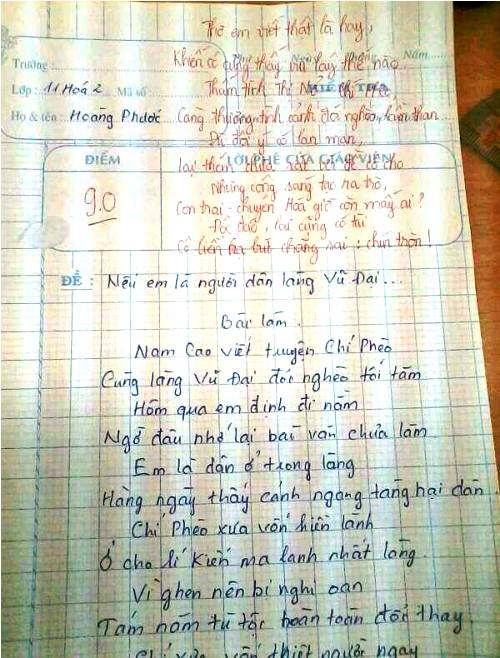 Thơ em viết thật là hay,
Khiến cô cũng thấy mê lay thế nào
Năm
Trường
Thâm tình Thị Nở Chí Phèo,
Lớp: 11 Hoá 2 Mã số:
Họ & tên: Hoàng Phước
Càng thương tình cảnh đói nghèo, lầm than
Dù đôi ý có lan man,
ĐIỂM
LỜI PHÊ CỦA GIÁO VIÊN
lại thêm chưa sát
Nhưng công sáng tác ra trò,
9.0
Con trai chuyên Hoá giờ còn mấy ai?
Đã đảo, lại cũng có tài
Cô liền hạ bút chẳng sai: chín tròn!
ĐỀ: Nếu em là người dân làng Vũ Đại...
Bài làm.
Nam Cao viết truyện Chí Phèo
Cũng làng Vũ Đại đói nghèo tối tăm
Hôm qua em định đi nằm
Ngờ đâu nhớ lại bài văn chưa làm
Em là dân ở trong làng
Hàng ngày thấy cảnh ngang tàng hại dân
Chí Phèo xưa vốn hiền lành
Ở cho lí Kiến ma lanh nhất làng.
Vì ghen nên bị nghi oan
Tám năm tù tội hoàn toàn đổi thay
Chí xưa vốn thiệt người ngay